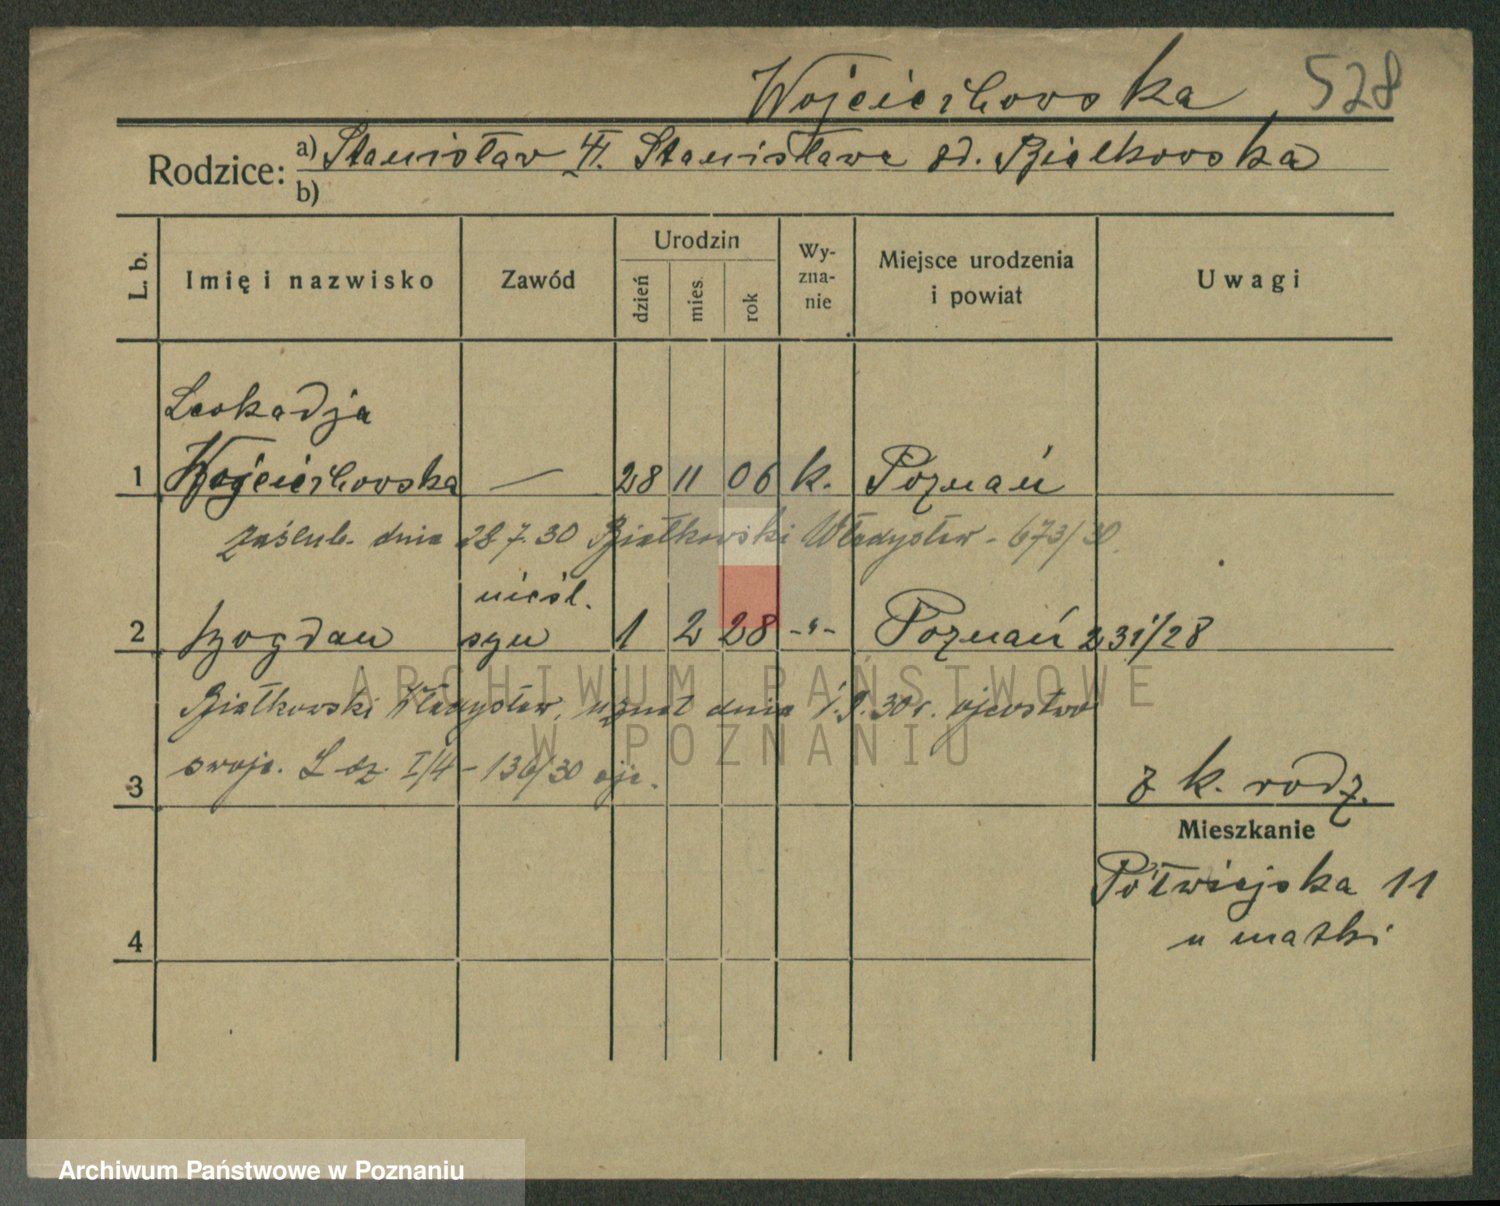 Wojciechowska 528
Rodzice: a) Stanisław Stanisława Białkowska
b)
L. b.
Imię i nazwisko
Zawód
Urodzin
dzień
mies.
rok
Wy-
zna-
nie
Miejsce urodzenia
i powiat
Uwagi
Leokadja
1 Wojciechowska — 28 11 06 k. Poznań
zaślub. dnia 28.7.30 Białkowski Władysław - 673/30.
nieśl.
2 Bogdan syn 1 2 28 -"- Poznań 231/28
Białkowski Władysław, uznał dnia 1.9.30 r. ojcostwo
swoje. L. dz. I/4 - 136/30
3
z k. rodz.
Mieszkanie
Półwiejska 11
u matki
4
ARCHIWUM PAŃSTWOWE
W POZNANIU
Archiwum Państwowe w Poznaniu